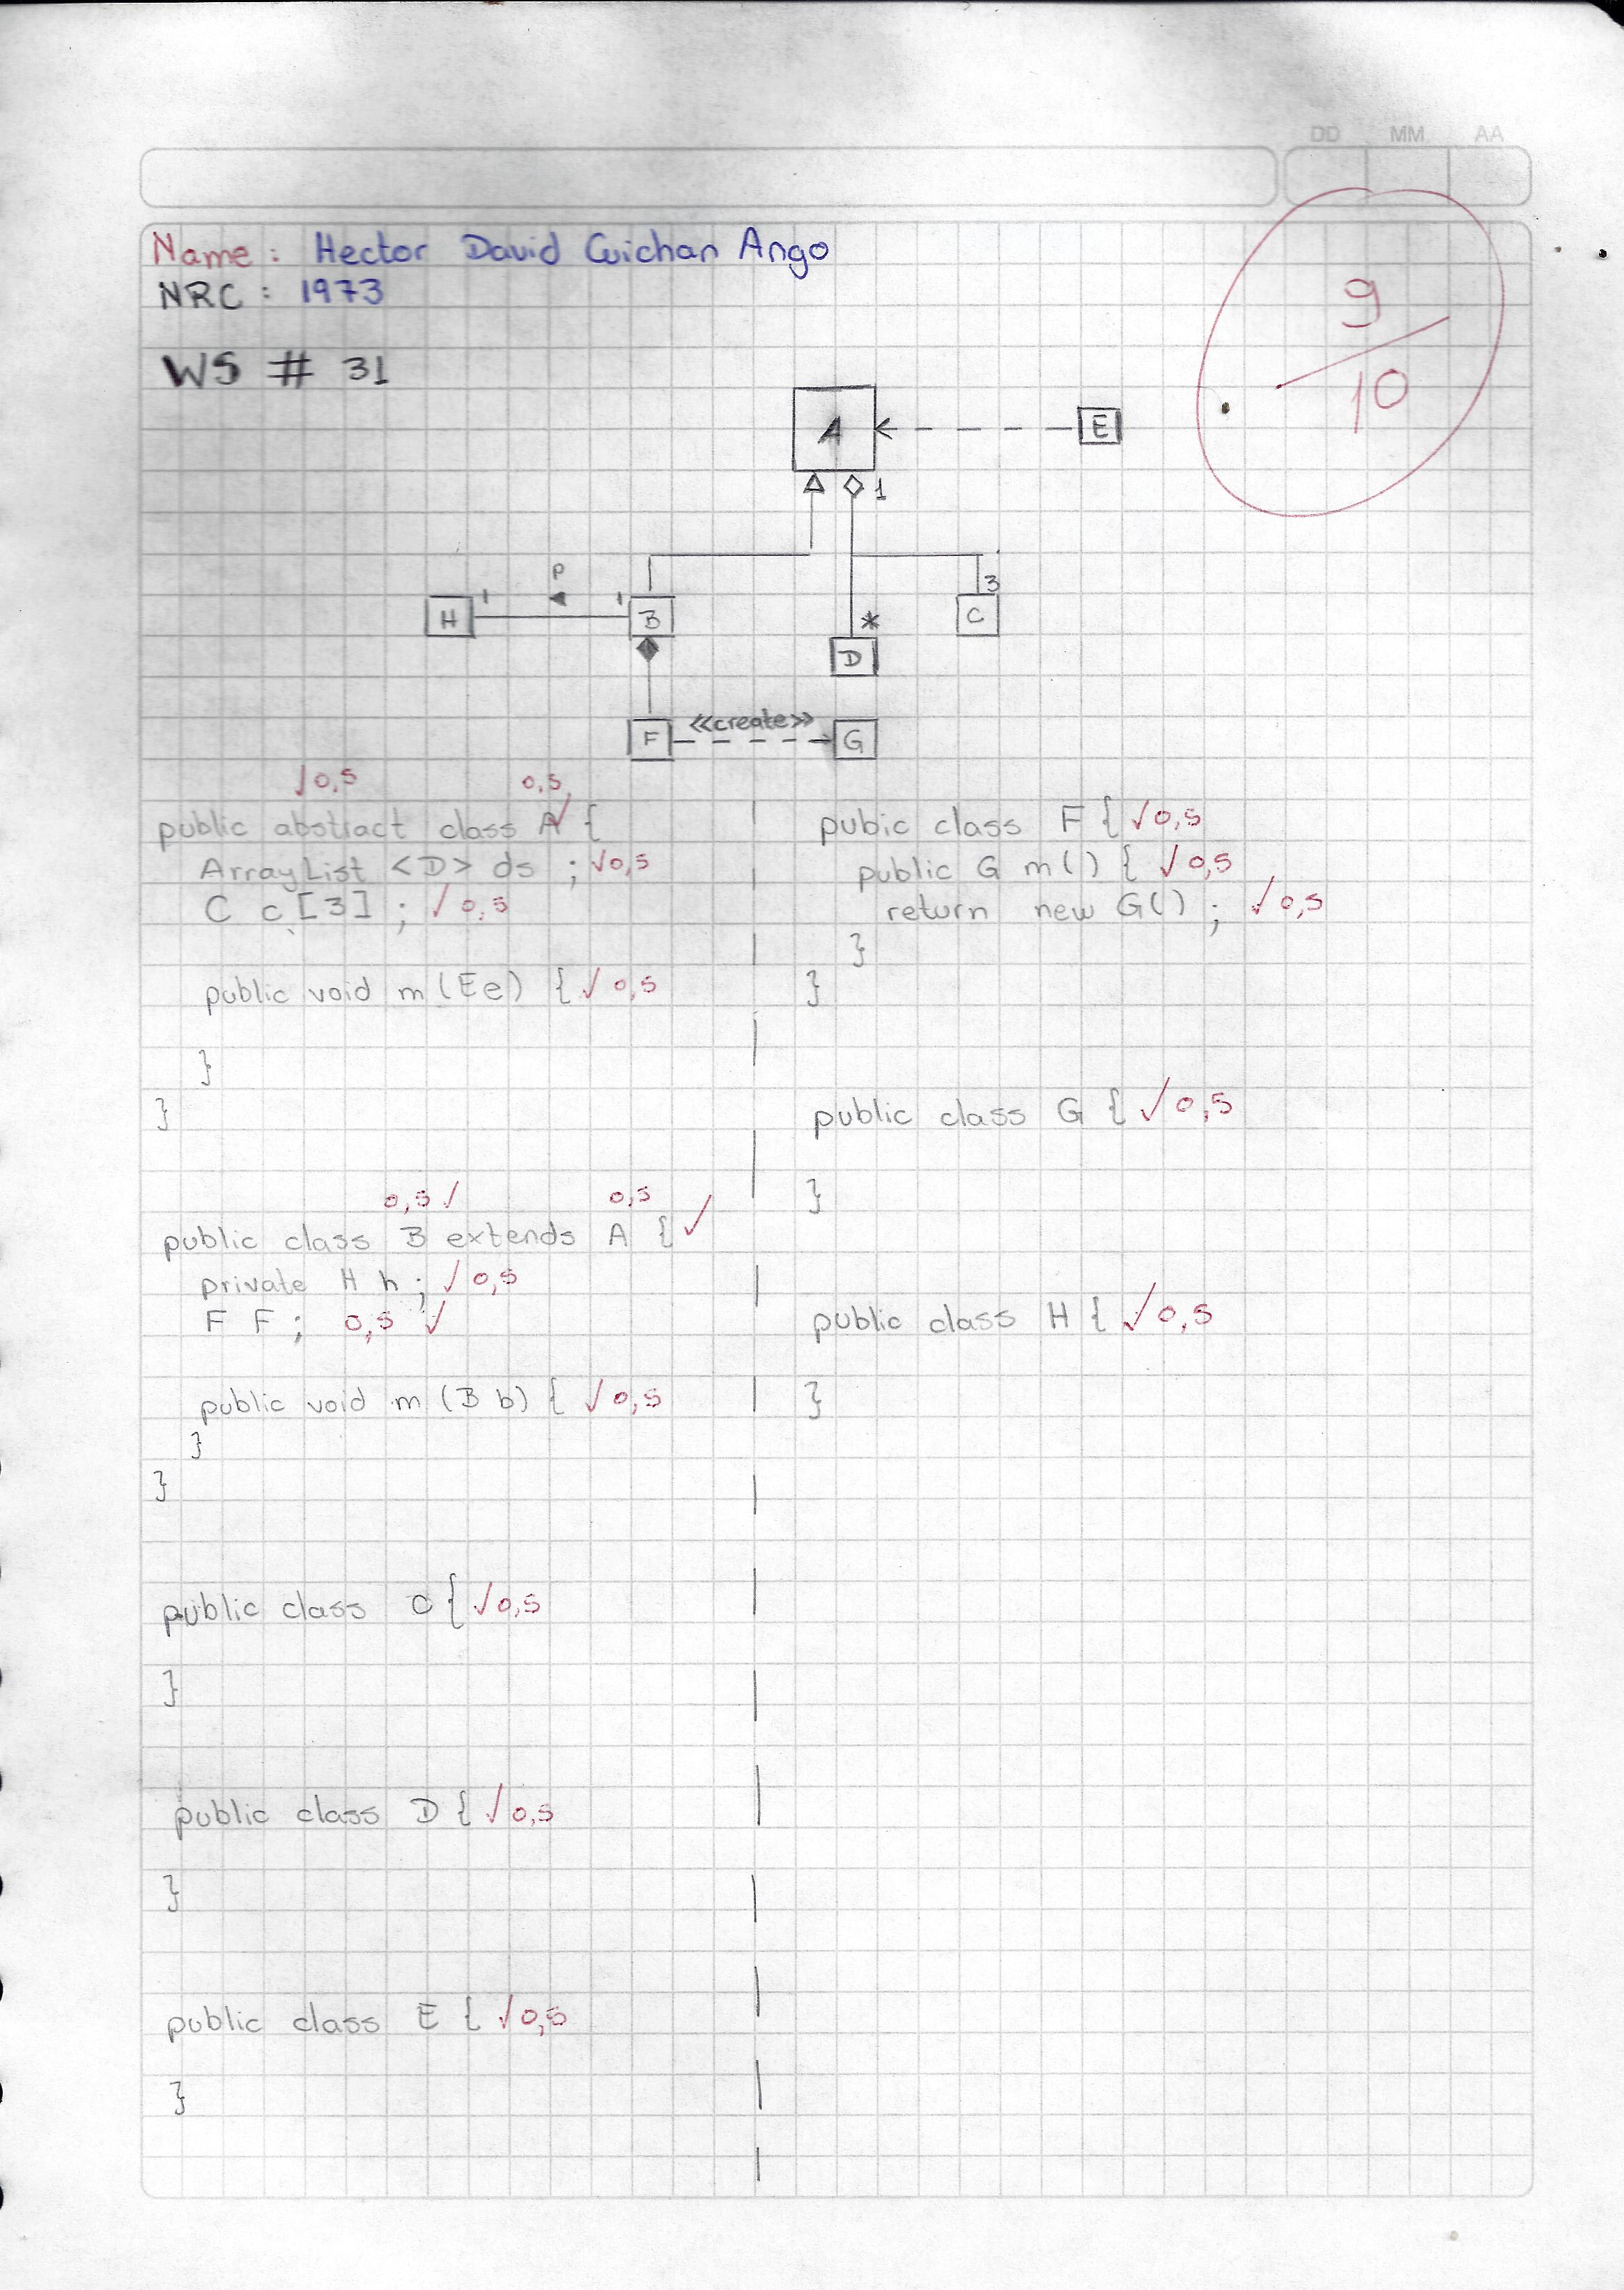 DD MM AA
Name: Hector David Guichan Ango
NRC: 1973
9
10
WS # 31
A
E
1
P
3
1
1
H
B
C
*
D
<<create>>
F
G
√0,5 0,5
public abstract class A √ {
ArrayList <D> ds ; √0,5
C c[3] ; √0,5
public void m (E e) { √0,5
}
}
0,5 √ 0,5
public class B extends A { √
private H h ; √0,5
F F ; 0,5 √
public void m (B b) { √0,5
}
}
public class C { √0,5
}
public class D { √0,5
}
public class E { √0,5
}
pubic class F { √0,5
public G m() { √0,5
return new G() ; √0,5
}
}
public class G { √0,5
}
public class H { √0,5
}